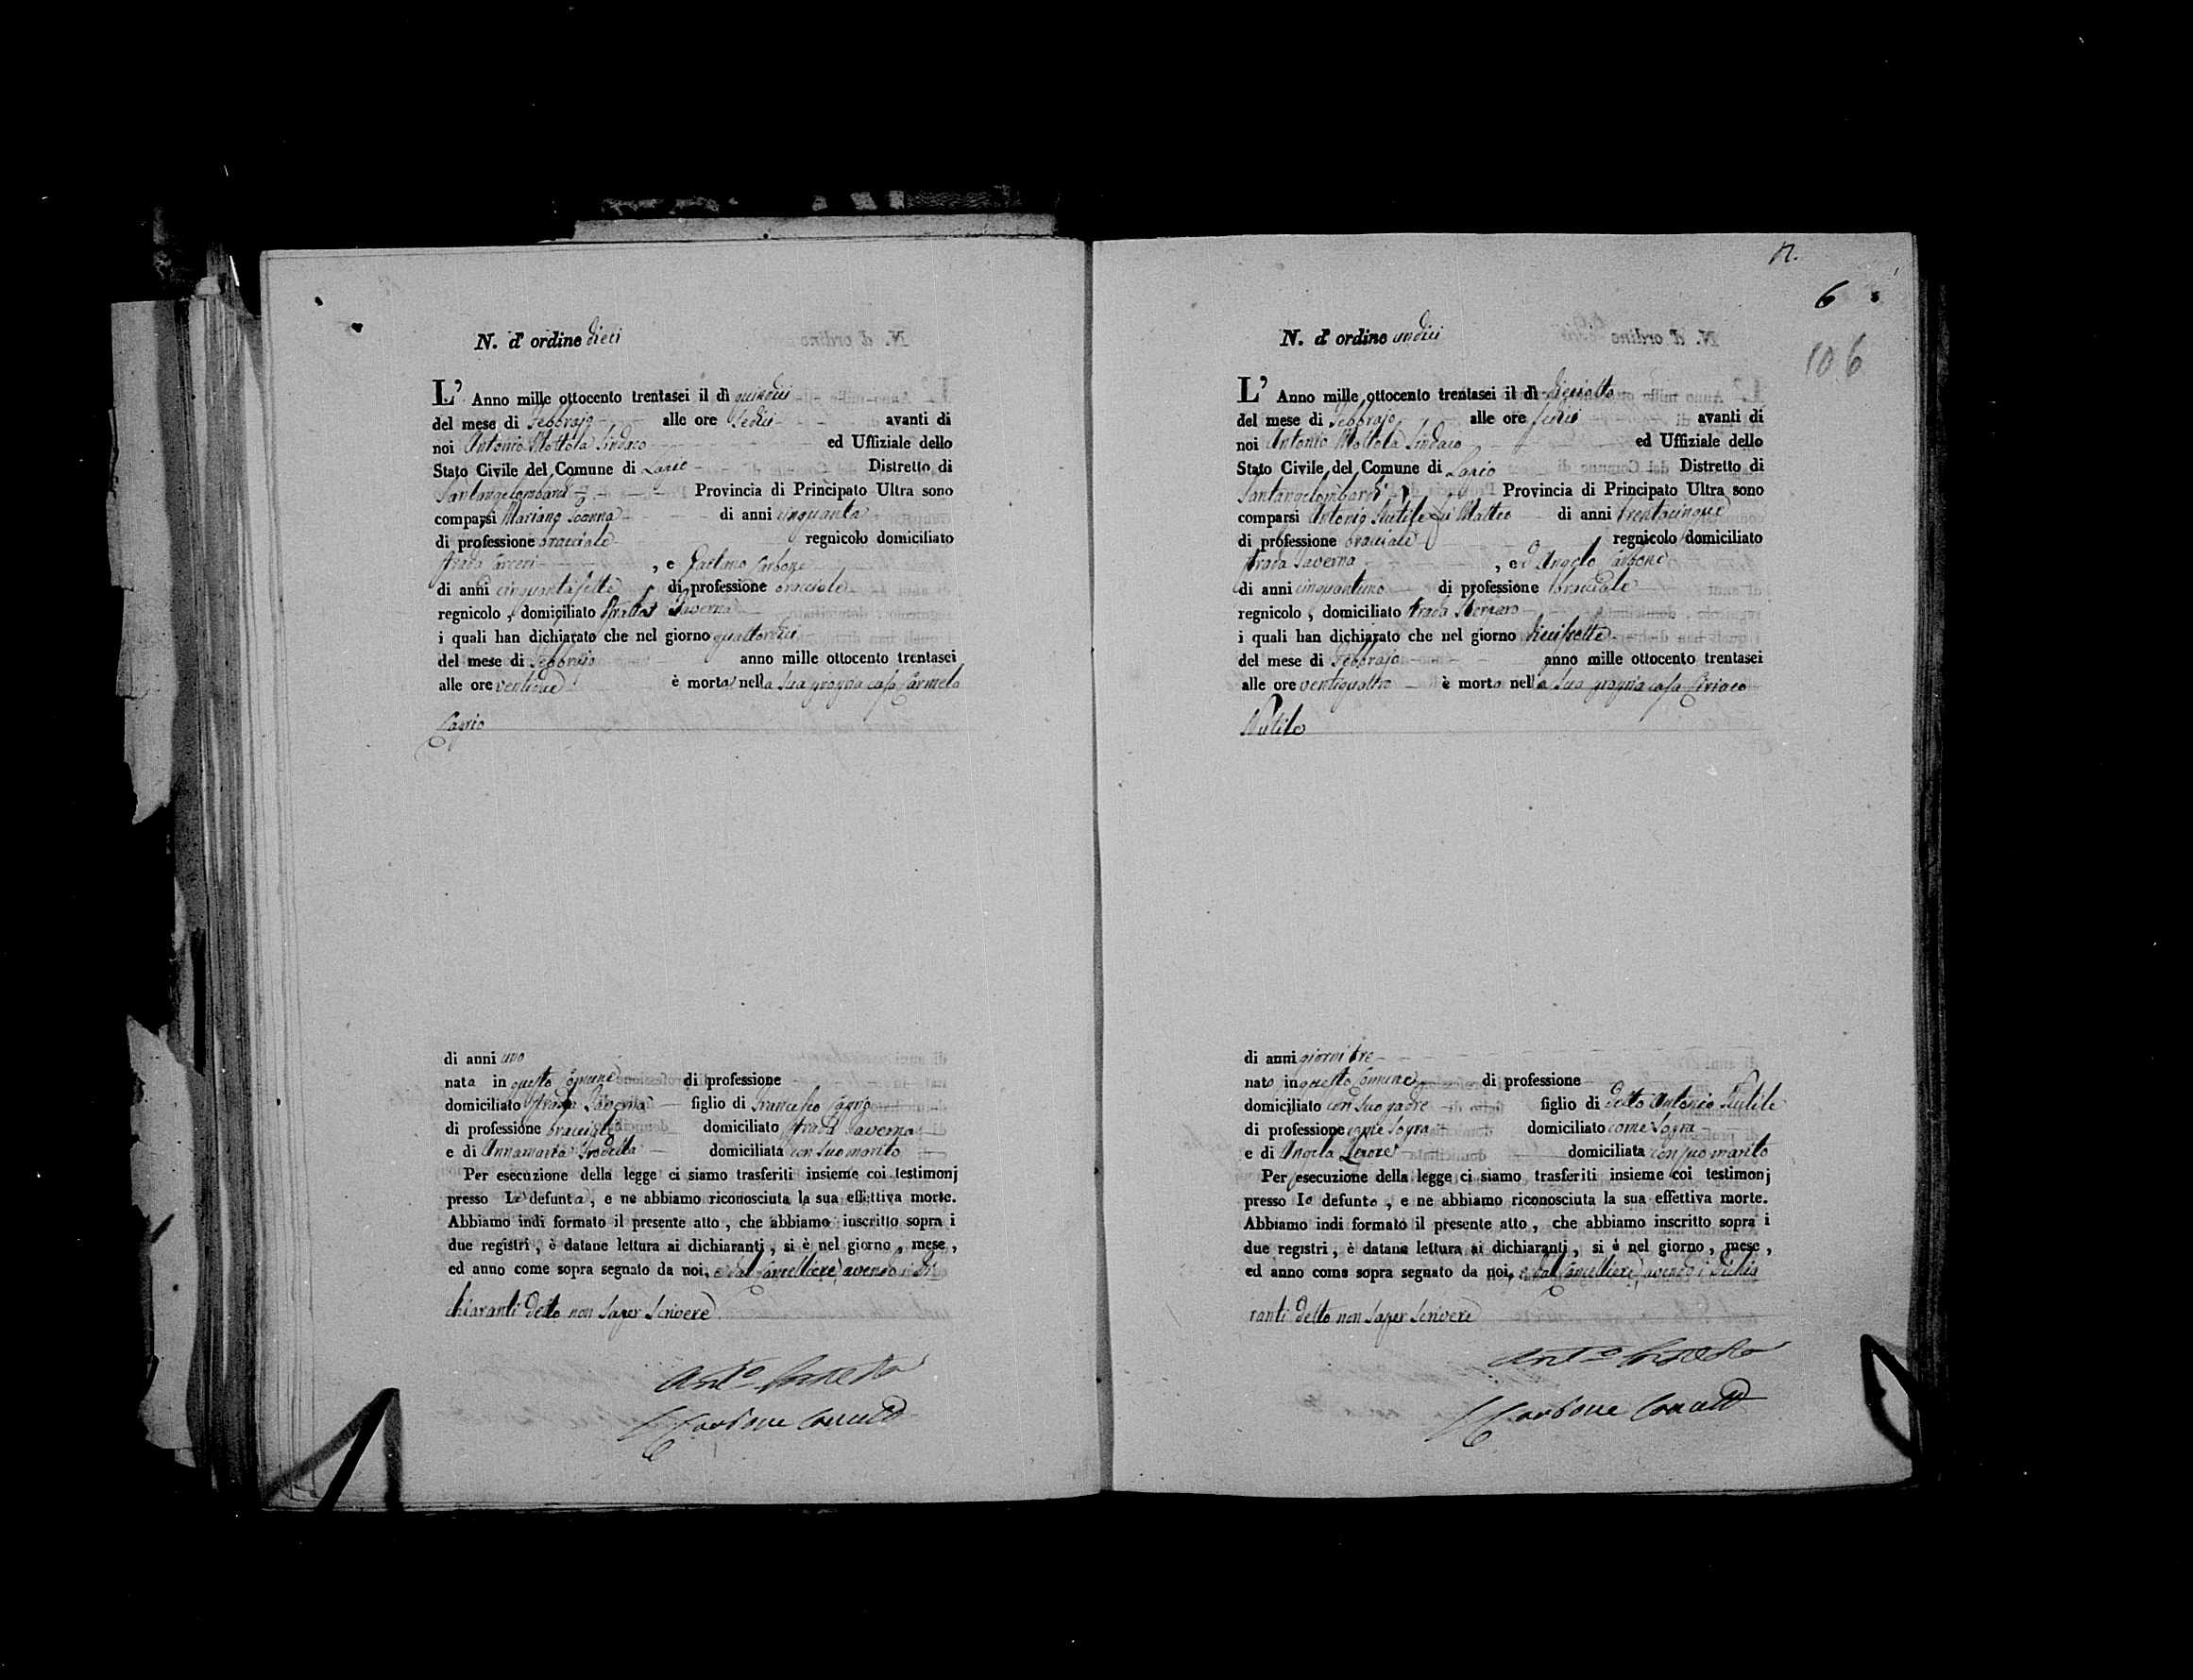 N. d' ordine dieci
L' Anno mille ottocento trentasei il dì quindici
del mese di Febbrajo alle ore Sedici avanti di
noi Antonio Mottola Sindaco ed Uffiziale dello
Stato Civile del Comune di Distretto di
Santangelombardi Provincia di Principato Ultra sono
comparsi Mariano di anni cinquanta
di professione bracciale regnicolo domiciliato
strada , e Gaetano Carbone
di anni cinquantasette di professione bracciale
regnicolo , domiciliato strada Taverna
i quali han dichiarato che nel giorno quattordici
del mese di Febbrajo anno mille ottocento trentasei
alle ore ventidue è morta nella sua propria casa Carmela
Caprio
di anni uno
nata in questo Comune di professione
domiciliato strada Taverna figlio di Francesco Caprio
di professione bracciale domiciliato strada Taverna
e di Annamaria domiciliata con suo marito
Per esecuzione della legge ci siamo trasferiti insieme coi testimonj
presso La defunta , e ne abbiamo riconosciuta la sua effettiva morte.
Abbiamo indi formato il presente atto , che abbiamo inscritto sopra i
due registri , è datane lettura ai dichiaranti , si è nel giorno , mese ,
ed anno come sopra segnato da noi, e dal Cancelliere, avendo i di
chiaranti detto non saper scrivere
Carbone
n.
6
106
N. d' ordine undici
L' Anno mille ottocento trentasei il dì dieciotto
del mese di Febbrajo alle ore sedici avanti di
noi Antonio Mottola Sindaco ed Uffiziale dello
Stato Civile del Comune di Distretto di
Santangelombardi Provincia di Principato Ultra sono
comparsi Antonio Rutile di Matteo di anni trentacinque
di professione bracciale regnicolo domiciliato
strada Taverna , e d Angelo Carbone
di anni cinquantuno di professione bracciale
regnicolo , domiciliato strada
i quali han dichiarato che nel giorno diecisette
del mese di Febbrajo anno mille ottocento trentasei
alle ore ventiquattro è morto nella sua propria casa Ciriaco
Rutile
di anni giorni tre
nato in questo Comune di professione
domiciliato con suo padre figlio di detto Antonio Rutile
di professione come sopra domiciliato come sopra
e di Angela domiciliata con suo marito
Per esecuzione della legge ci siamo trasferiti insieme coi testimonj
presso Io defunto , e ne abbiamo riconosciuta la sua effettiva morte.
Abbiamo indi formato il presente atto , che abbiamo inscritto sopra i
due registri , è datane lettura ai dichiaranti , si è nel giorno , mese ,
ed anno come sopra segnato da noi, e dal Cancelliere, avendo i dichia
ranti detto non saper scrivere
Carbone